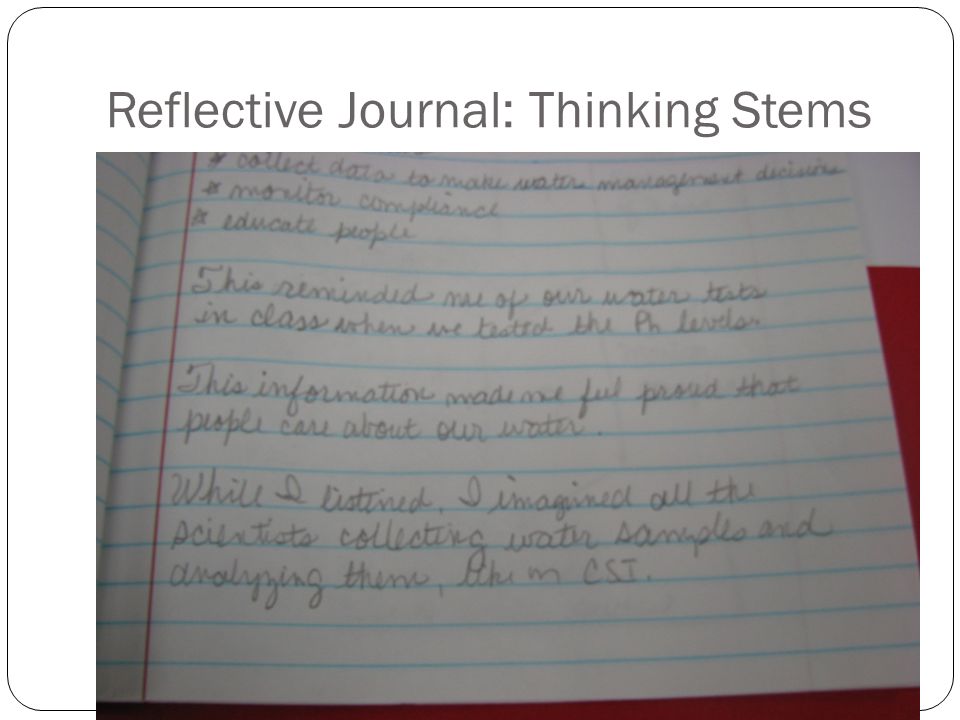 Reflective Journal: Thinking Stems
* collect data to make water management decisions
* monitor compliance
* educate people
This reminded me of our water tests
in class when we tested the Ph levels.
This information made me feel proud that
people care about our water.
While I listened, I imagined all the
scientists collecting water samples and
analyzing them, like on CSI.